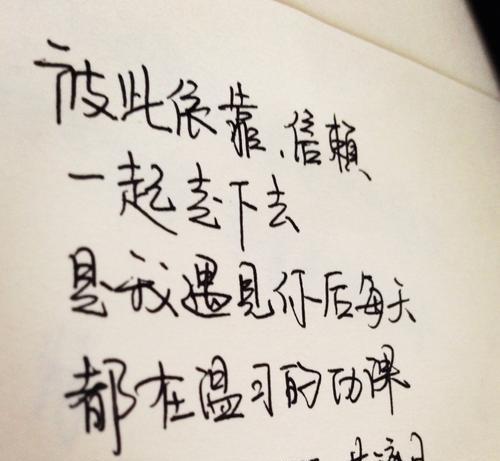 彼此依靠、信赖
一起走下去
是我遇見你后每天
都在温习的功课